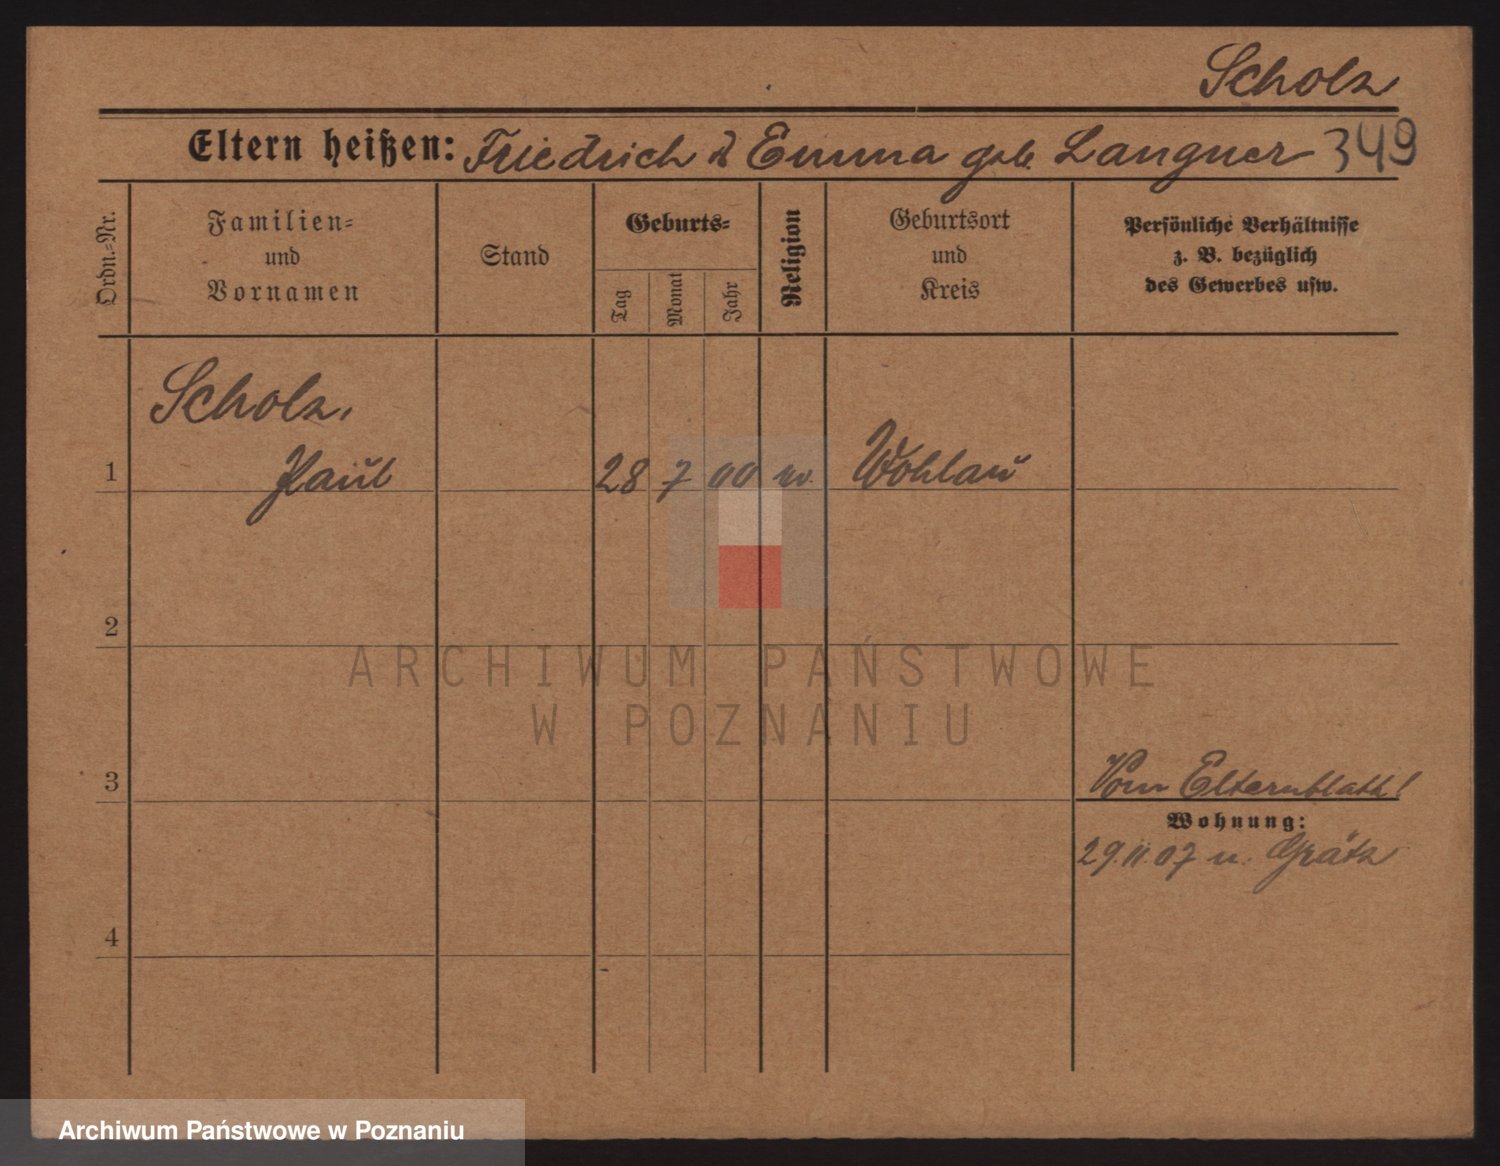 Scholz
Eltern heißen: Friedrich & Emma geb. Langner 349
Ordn.-Nr.
Familien-
und
Vornamen
Stand
Geburts-
Tag
Monat
Jahr
Religion
Geburtsort
und
Kreis
Persönliche Verhältnisse
z. B. bezüglich
des Gewerbes usw.
Scholz,
1 Paul 28 7 00 Wohlau
2
ARCHIWUM PAŃSTWOWE
W POZNANIU
3 Vom Elternblatt!
Wohnung:
29.11.07 n. Grätz
4
Archiwum Państwowe w Poznaniu